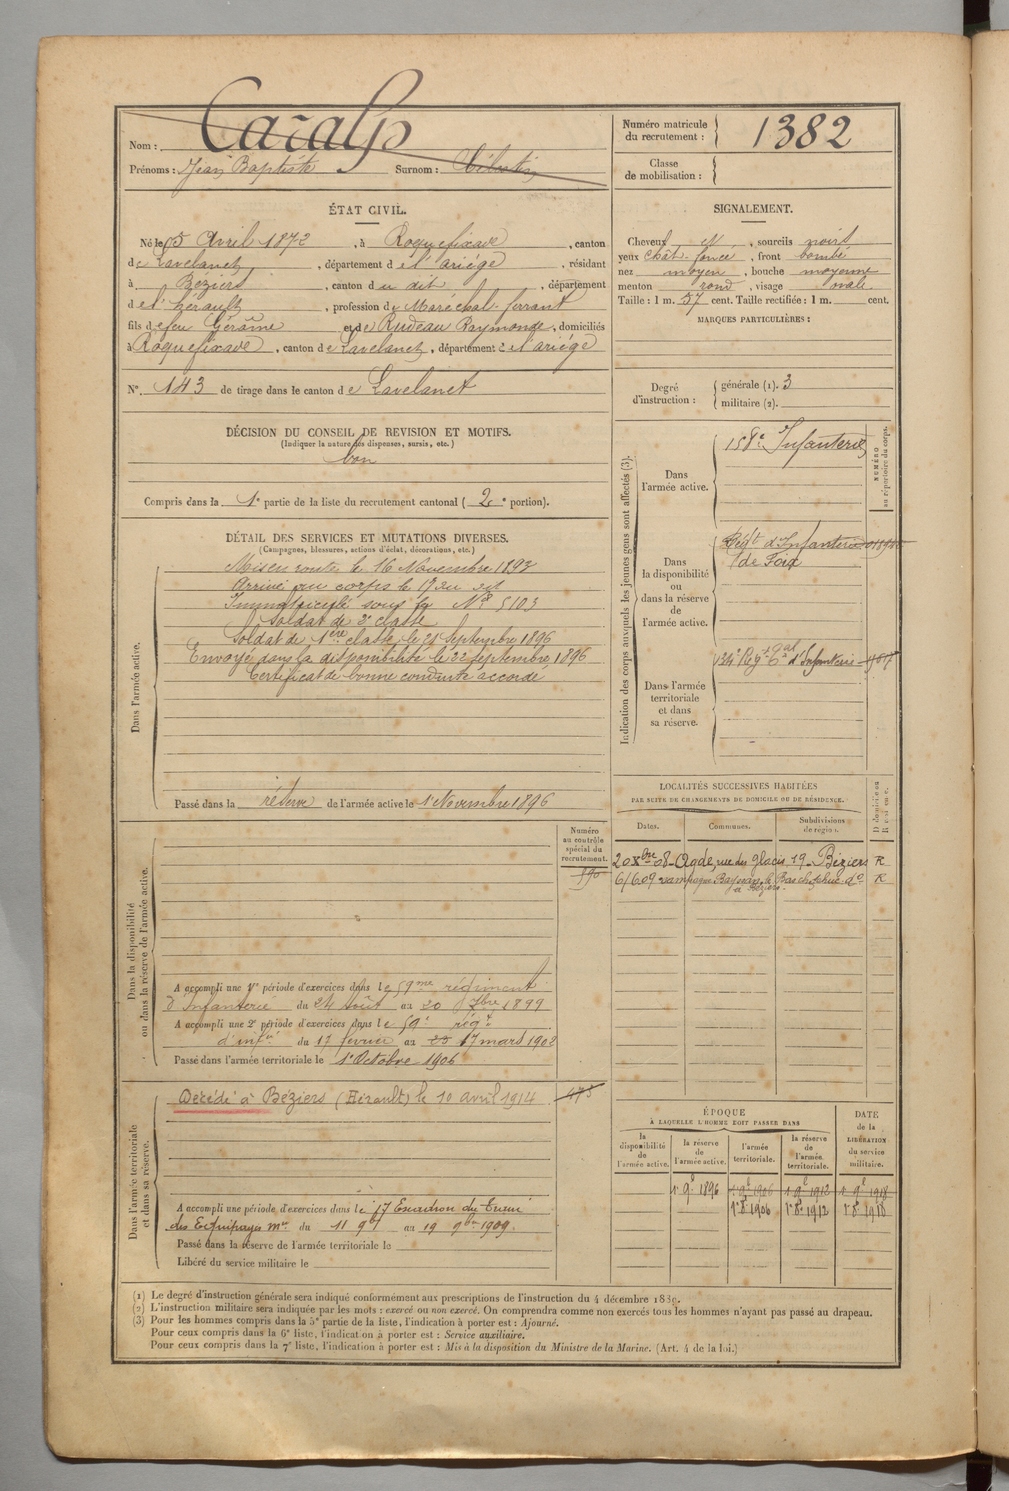 Nom : Caralp
Prénoms : Jean Baptiste Surnom : Célestin
Numéro matricule du recrutement : 1382
Classe de mobilisation :
ÉTAT CIVIL.
Né le 5 Avril 1872, à Roquefixade, canton
de Lavelanet, département de l'ariége, résidant
à Béziers, canton du dit, département
de l'hérault, profession de Maréchal-ferrant
fils de feu Gérôme et de Rudeau Raymonde, domiciliés
à Roquefixade, canton de Lavelanet, département de l'ariége
N° 143 de tirage dans le canton de Lavelanet
SIGNALEMENT.
Cheveux N, sourcils noirs
yeux chat. foncé, front bombé
nez moyen, bouche moyenne
menton rond, visage ovale.
Taille : 1 m. 57 cent. Taille rectifiée : 1 m. cent.
MARQUES PARTICULIÈRES :
Degré d'instruction : générale (1). 3
militaire (2).
DÉCISION DU CONSEIL DE REVISION ET MOTIFS.
(Indiquer la nature des dispenses, sursis, etc.)
bon
Compris dans la 1e partie de la liste du recrutement cantonal (2e portion).
DÉTAIL DES SERVICES ET MUTATIONS DIVERSES.
(Campagnes, blessures, actions d'éclat, décorations, etc.)
Dans l'armée active.
Mis en route le 16 Novembre 1893
Arrivé au corps le 17 du dit
Immatriculé sous le N° 5103
Soldat de 2e classe
Soldat de 1ère classe le 21 Septembre 1896
Envoyé dans la disponibilité le 22 septembre 1896
Certificat de bonne conduite accordé
Passé dans la réserve de l'armée active le 1 Novembre 1896
Indication des corps auxquels les jeunes gens sont affectés (3).
NUMÉRO au répertoire du corps.
Dans l'armée active.
158e Infanterie
Dans la disponibilité ou dans la réserve de l'armée active.
Régt d'Infanterie
de Foix
Dans l'armée territoriale et dans sa réserve.
Numéro au contrôle spécial du recrutement.
Dans la disponibilité ou dans la réserve de l'armée active.
A accompli une 1e période d'exercices dans le 59me régiment
d'Infanterie du 24 Août au 20 7bre 1899
A accompli une 2e période d'exercices dans le 59e régt
d'infie du 17 février au 17 mars 1902
Passé dans l'armée territoriale le 1 Octobre 1906
LOCALITÉS SUCCESSIVES HABITÉES
PAR SUITE DE CHANGEMENTS DE DOMICILE OU DE RÉSIDENCE.
Dates. Communes. Subdivisions de région. D domicile ou R résidence.
20 Xbre 08 - Agde, rue des glacis 19 - Béziers R
6/6 09 campagne do R
à Béziers.
Dans l'armée territoriale et dans sa réserve.
Décédé à Béziers (Hérault) le 10 avril 1914 473
A accompli une période d'exercices dans le 17 Escadron du Train
des Equipages Mre du 11 9bre au 19 9bre 1909.
Passé dans la réserve de l'armée territoriale le
Libéré du service militaire le
ÉPOQUE
À LAQUELLE L'HOMME DOIT PASSER DANS
DATE de la LIBÉRATION du service militaire.
la disponibilité de l'armée active. la réserve de l'armée active. l'armée territoriale. la réserve de l'armée territoriale.
1r 9e 1896 1r 9e 1906 1r 9e 1912 1r 9e 1918
1r 8e 1906 1r 8e 1912 1r 8e 1918
(1) Le degré d'instruction générale sera indiqué conformément aux prescriptions de l'instruction du 4 décembre 1889.
(2) L'instruction militaire sera indiquée par les mots : exercé ou non exercé. On comprendra comme non exercés tous les hommes n'ayant pas passé au drapeau.
(3) Pour les hommes compris dans la 5e partie de la liste, l'indication à porter est : Ajourné.
Pour ceux compris dans la 6e liste, l'indication à porter est : Service auxiliaire.
Pour ceux compris dans la 7e liste, l'indication à porter est : Mis à la disposition du Ministre de la Marine. (Art. 4 de la loi.)